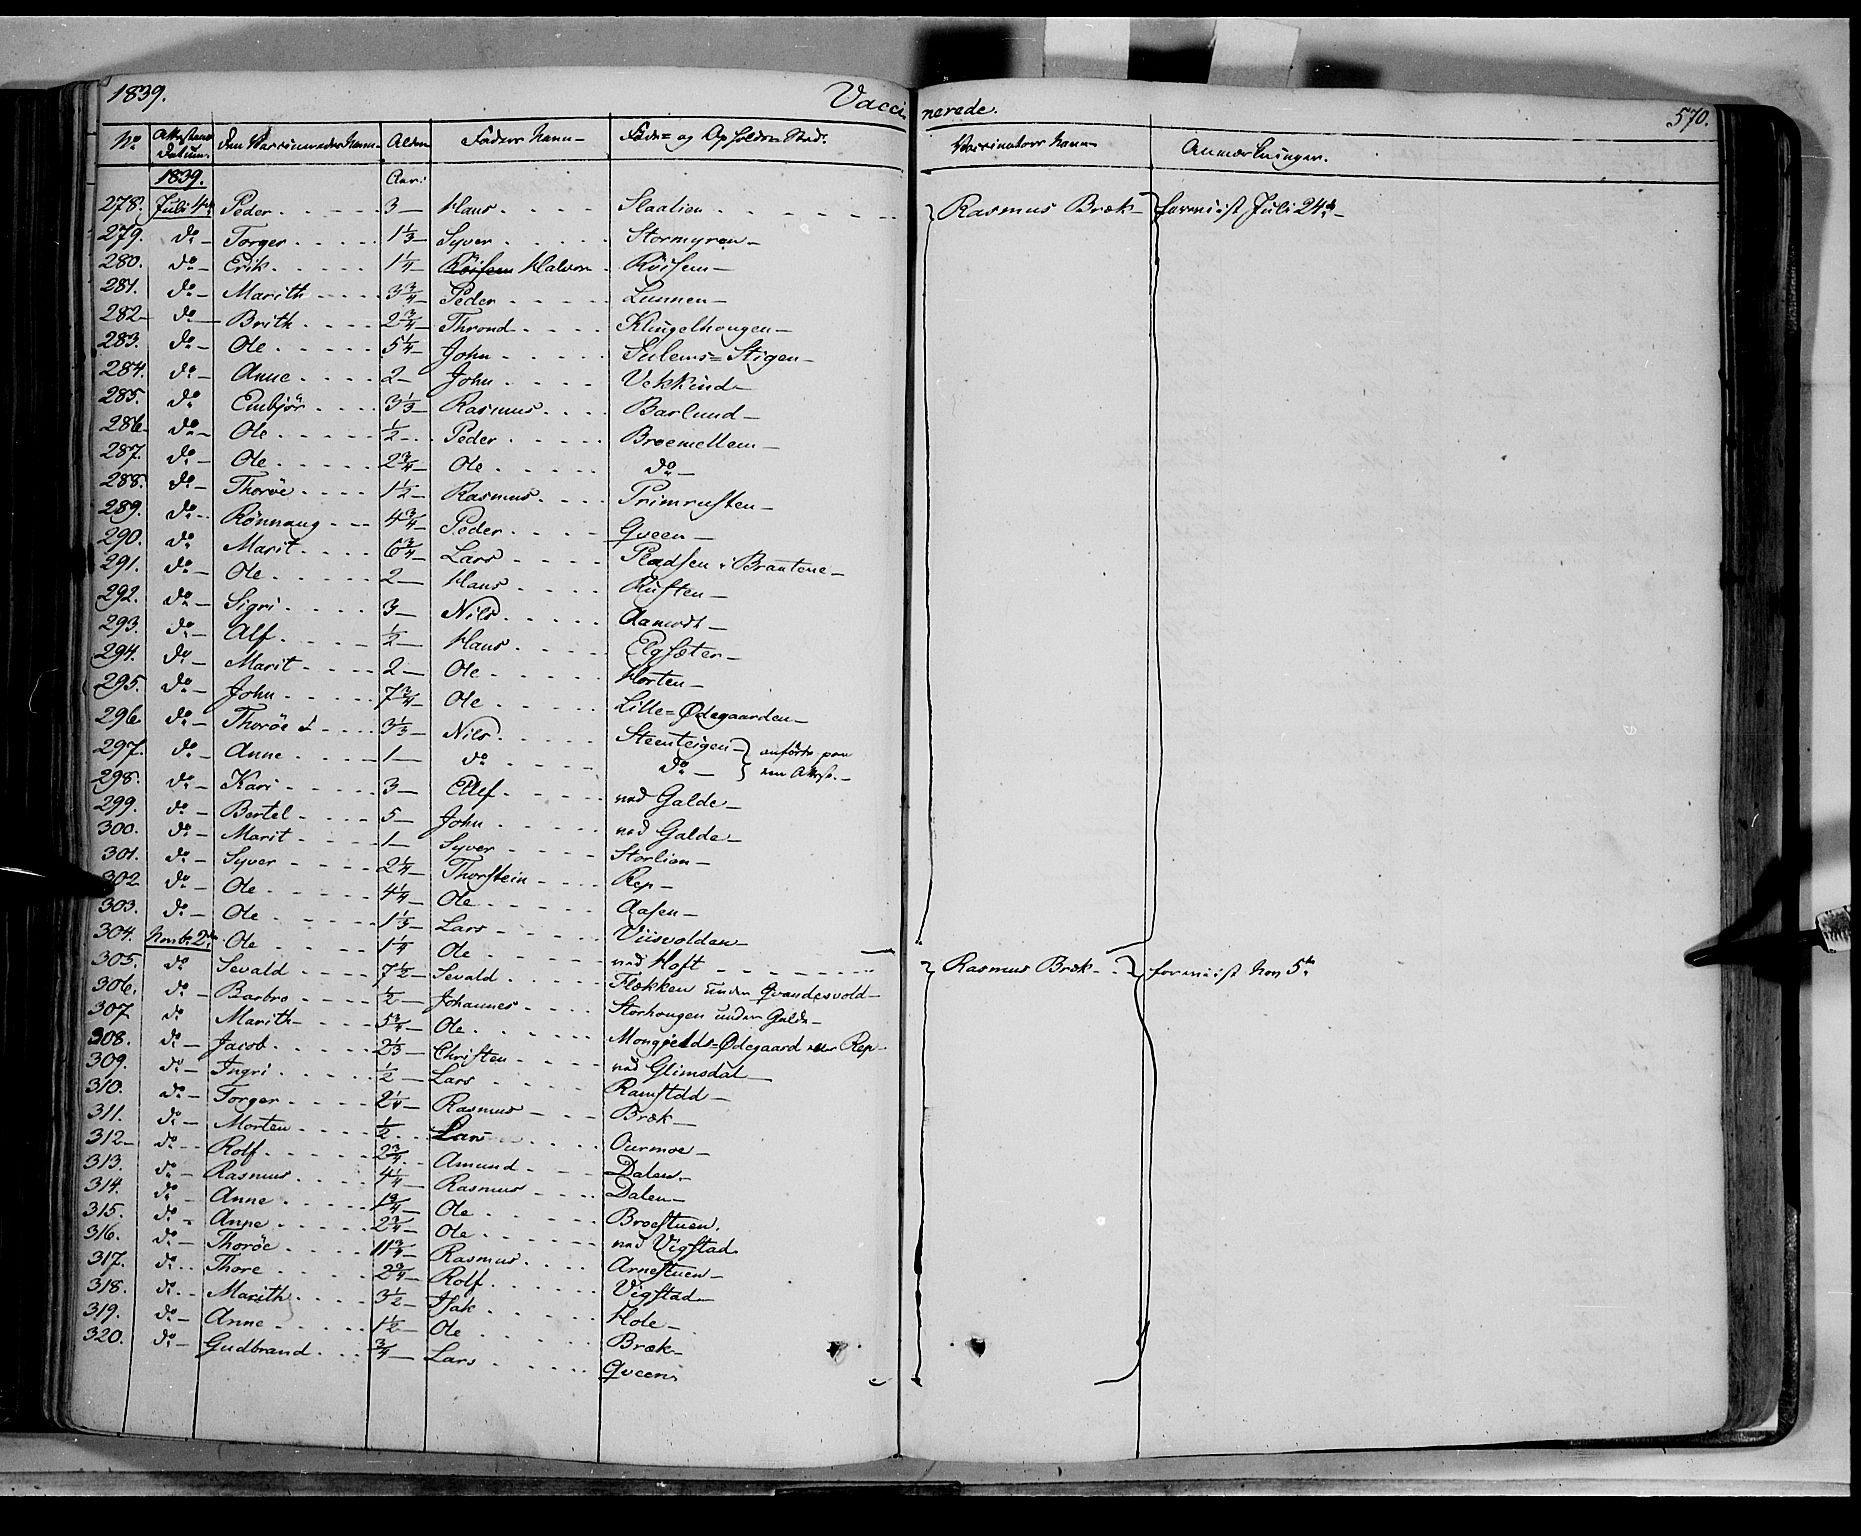 1839. Vaccinerede. 570.
No Attestens Datum. Den Vaccineredes Navn Alder Faders Navn Føde= og Opholds Sted. Vaccinators Navn Anmærkninger.
1839. Aar:
278. Juli 4de Peder 3 Hans Slaalien Rasmus Bræk forviist Juli 24de
279. do Torger 1 1/3 Syver Stormyren
280. do Erik 1 1/4 Röisem Halvor Röisem
281. do Marith 3 3/4 Peder Lunnen
282 do Brith 2 3/4 Thrond Klingelhougen
283. do Ole 5 1/4 John Sulems=Stigen
284. do Anne 2 John Vekkind
285. do Embjör 3 1/3 Rasmus Barlund
286 do Ole 1/2 Peder Broemellem
287. do Ole 2 3/4 Ole do
288. do Thoröe 1 1/2 Rasmus Primrusten
289. do Rönnaug 4 3/4 Peder Qveen
290. do Marit 6 3/4 Lars Pladsen i Brautene
291. do Ole 2 Hans Rusten
292. do Sigri 3 Nils Aamodt
293. do Alf 1/2 Hans Elgsæter
294. do Marit 2 Ole Horten
295. do John 7 3/4 Ole Lille=Ødegaarden
296 do Thoröe 3 1/3 Nils Steenteigen anförte paa
297. do Anne 1 do do een Attest.
298. do Kari 3 Ellef ved Galde
299. do Bertel 5 John ved Galde
300. do Marit 1 Syver Storlien
301. do Syver 2 1/4 Thorstein Rep
302 do Ole 4 1/4 Ole Aasen
303. do Ole 1 1/3 Lars Viisvolden
304. Novb. 2den Ole 1 1/4 Ole ved Hoft Rasmus Bræk forviist Nov 5te
305. do Sevald 7 1/2 Sevald Flækken under Qvandesvold
306. do Barbro 1/2 Johannes Storhougen under Galde
307 do Marith 5 3/4 Ole Mongjelds=Ødegaard under Rep
308. do Jacob 2 1/3 Christen ved Glimsdal
309. do Ingri 1/2 Lars Ramstad
310. do Torger 2 1/4 Rasmus Bræk
311. do Morten 1/2 Lars Ourmoe
312 do Rolf 2 3/4 Amund Dalen
313. do Rasmus 4 1/4 Rasmus Dalen
314. do Anne 1 3/4 Ole Broestuen.
315. do Anne 2 3/4 Ole ved Vigstad
316. do Thoröe 11 3/4 Rasmus Arnestuen
317. do Thore 2 3/4 Rolf Vigstad
318. do Marith 3 1/2 Isak Hole
319. do Anne 1 1/2 Ole Bræk
320. do Gudbrand 3/4 Lars Qveen